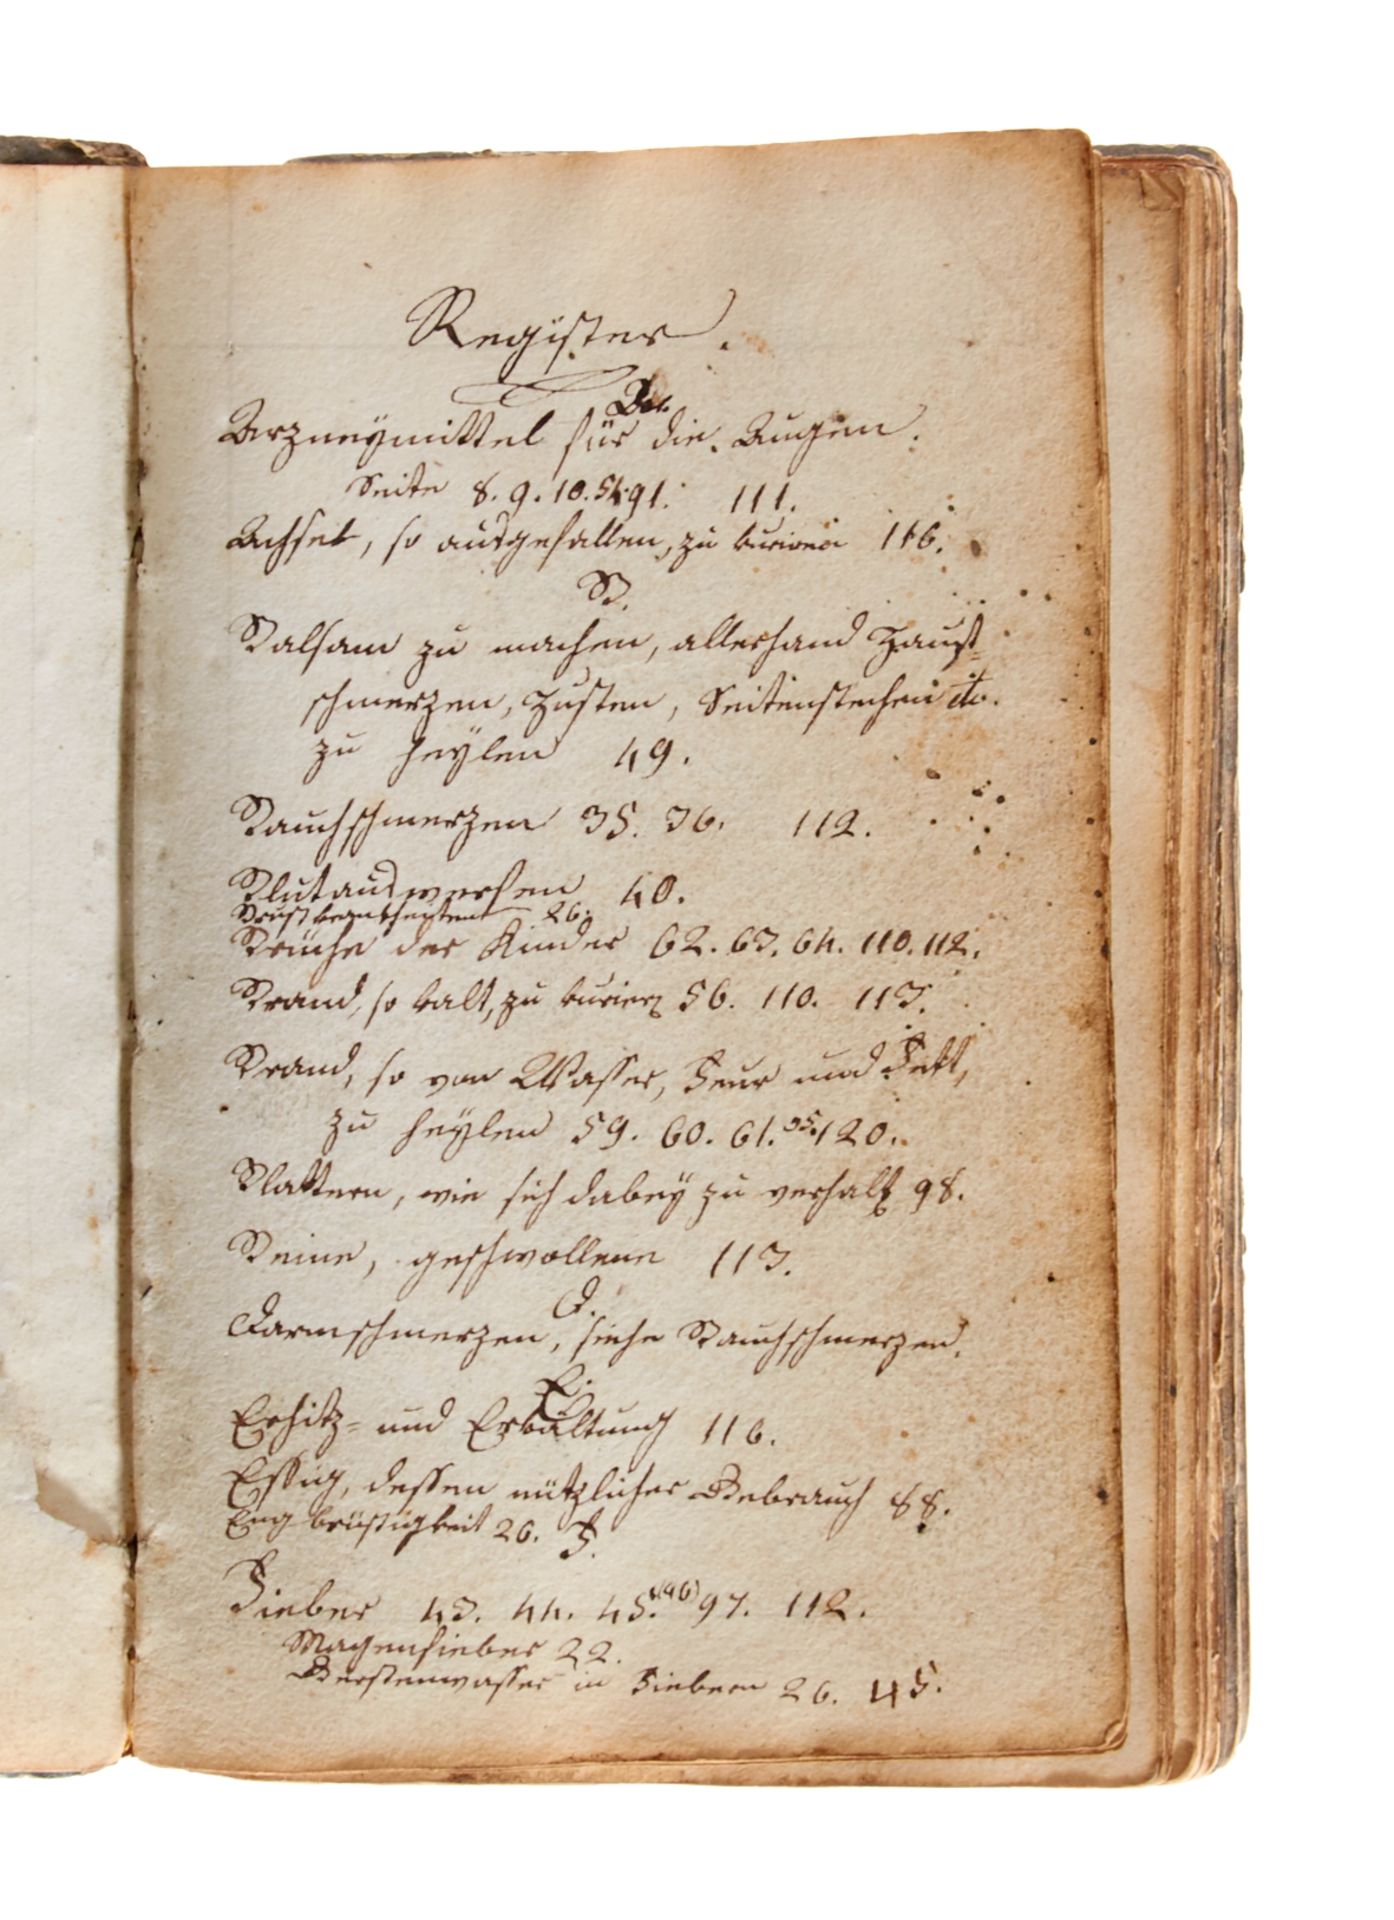 Register.
A.
Arzneymittel für die Augen.
Seite 8. 9. 10. 54. 91. 111.
Achsel, so ausgefallen, zu kuriren 116.
B.
Balsam zu machen, allerhand Haupt-
schmerzen, Husten, Seitenstechen etc.
zu heylen 49.
Bauchschmerzen 35. 36. 112.
Blutauswerfen 40.
Brustkrankheiten 26.
Brüche der Kinder 62. 63. 64. 110. 112.
Brand, so kalt, zu kurieren 56. 110. 113.
Brand, so von Wasser, Feur und Fett,
zu heylen 59. 60. 61. 95. 120.
Blattern, wie sich dabey zu verhalten 98.
Beine, geschwollene 113.
D.
Darmschmerzen, siehe Bauchschmerzen.
E.
Erhitz- und Erkältung 116.
Essig, dessen nützlicher Gebrauch 88.
Engbrüstigkeit 26.
F.
Fieber 43. 44. 45. (96) 97. 112.
Magenfieber 22.
Gerstenwasser in Fiebern 26. 45.